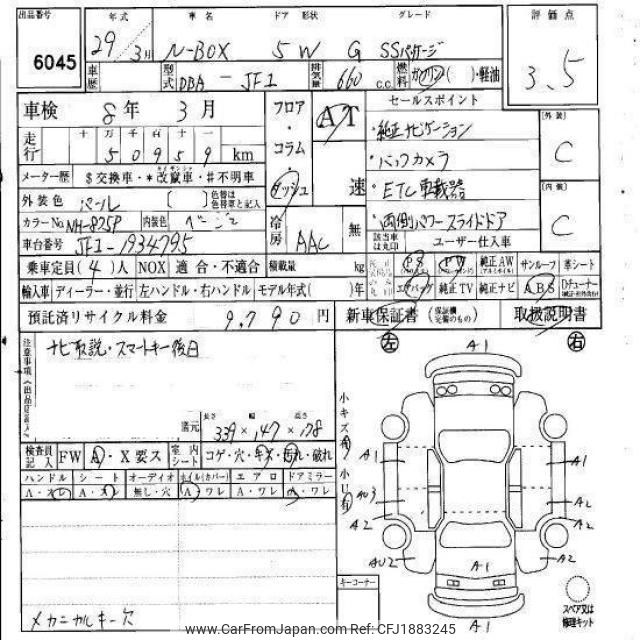 出品番号 年式 車名 ドア 形状 グレード 評価点
6045 29年 3月 N-BOX 5W G SSパッケージ 3.5
車歴 型式 DBA - JF1 排気量 660 c.c. 燃料 ガソリン( )・軽油
車検 8年 3月 フロア・コラム・ダッシュ AT 速 セールスポイント [外装] C
走行 十万千百十一 50959 km ・純正ナビゲーション
メーター歴 $交換車・*改竄車・#不明車 ・バックカメラ
外装色 パール [ ] 色替は色替車と記入 ・ETC車載器 [内装] C
カラーNo. NH-875P 内装色 ベージュ 冷房 AAC 無 ・両側パワースライドドア
車台番号 JF1-1934795 該当車は丸印 ユーザー仕入車
乗車定員(4)人 NOX 適合・不適合 積載量 kg PS PW 純正AW サンルーフ 革シート
輸入車 ディーラー・並行 左ハンドル・右ハンドル モデル年式( )年 エアバッグ 純正TV 純正ナビ ABS
預託済リサイクル料金 9,790円 新車保証書 取扱説明書
注意事項 ナビ取説・スマートキー後日
左 右
小キズ有 小U有
諸元 長さ 幅 高さ 339×147×178
検査員記入 FW A・X要ス 室内シート コゲ・穴・キズ・汚れ・破れ
ハンドル シート オーディオ ホイル(カバー) エアロ ドアミラー
A・スレ A・スレ 無し・穴 A ワレ A・ワレ A・ワレ
メカニカルキー欠
A1
A1 A1
AU3 A2
A2 A2
AU2 A1 A2
A1
キーコーナー
スペア又は修理キット
www.CarFromJapan.com Ref: CFJ1883245